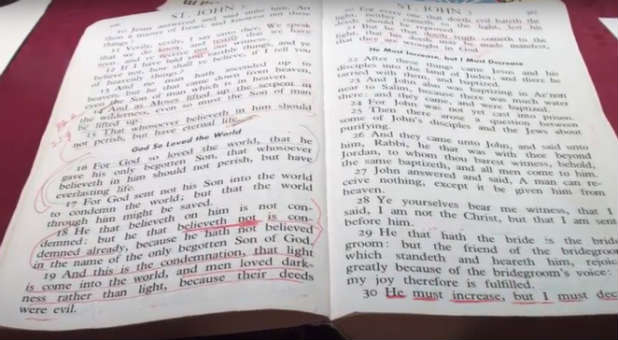 ST. JOHN
10 Jesus answered and said unto him, Art
thou a master of Israel, and knowest not these
things?
11 Verily, verily, I say unto thee, We speak
that we do know, and testify that we have
seen; and ye receive not our witness.
12 If I have told you earthly things, and ye
believe not, how shall ye believe, if I tell you
of heavenly things?
13 And no man hath ascended up to
heaven, but he that came down from heaven,
even the Son of man
14 And as Moses lifted up the serpent in
the wilderness, even so must the Son of man
be lifted up:
15 That whosoever believeth in him should
not perish, but have eternal life.
God So Loved the World
16 For God so loved the world, that he
gave his only begotten Son, that whosoever
believeth in him should not perish, but have
everlasting life.
17 For God sent not his Son into the world
to condemn the world; but that the world
through him might be saved.
18 He that believeth on him is not con-
demned: but he that believeth not is con-
demned already, because he hath not believed
in the name of the only begotten Son of God.
19 And this is the condemnation, that light
is come into the world, and men loved dark-
ness rather than light, because their deeds
were evil.
ST. JOHN
20 For every one that doeth evil hateth the
light, neither cometh to the light, lest his
deeds should be reproved.
21 But he that doeth truth cometh to the
light, that his deeds may be made manifest,
that they are wrought in God.
He Must Increase, but I Must Decrease
22 After these things came Jesus and his
disciples into the land of Judea; and there he
tarried with them, and baptized.
23 And John also was baptizing in Aenon
near to Salim, because there was much water
there: and they came, and were baptized.
24 For John was not yet cast into prison.
25 Then there arose a question between
some of John's disciples and the Jews about
purifying.
26 And they came unto John, and said unto
him, Rabbi, he that was with thee beyond
Jordan, to whom thou barest witness, behold,
the same baptizeth, and all men come to him.
27 John answered and said, A man can re-
ceive nothing, except it be given him from
heaven.
28 Ye yourselves bear me witness, that I
said, I am not the Christ, but that I am sent
before him.
29 He that hath the bride is the bride
groom: but the friend of the bridegroom
which standeth and heareth him, rejoic
greatly because of the bridegroom's voice:
my joy therefore is fulfilled.
30 He must increase, but I must dec